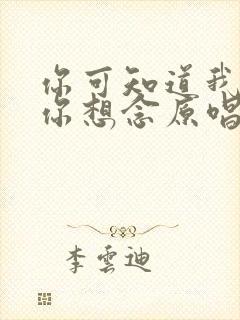 你可知道我
你想念原唱
李雲迪